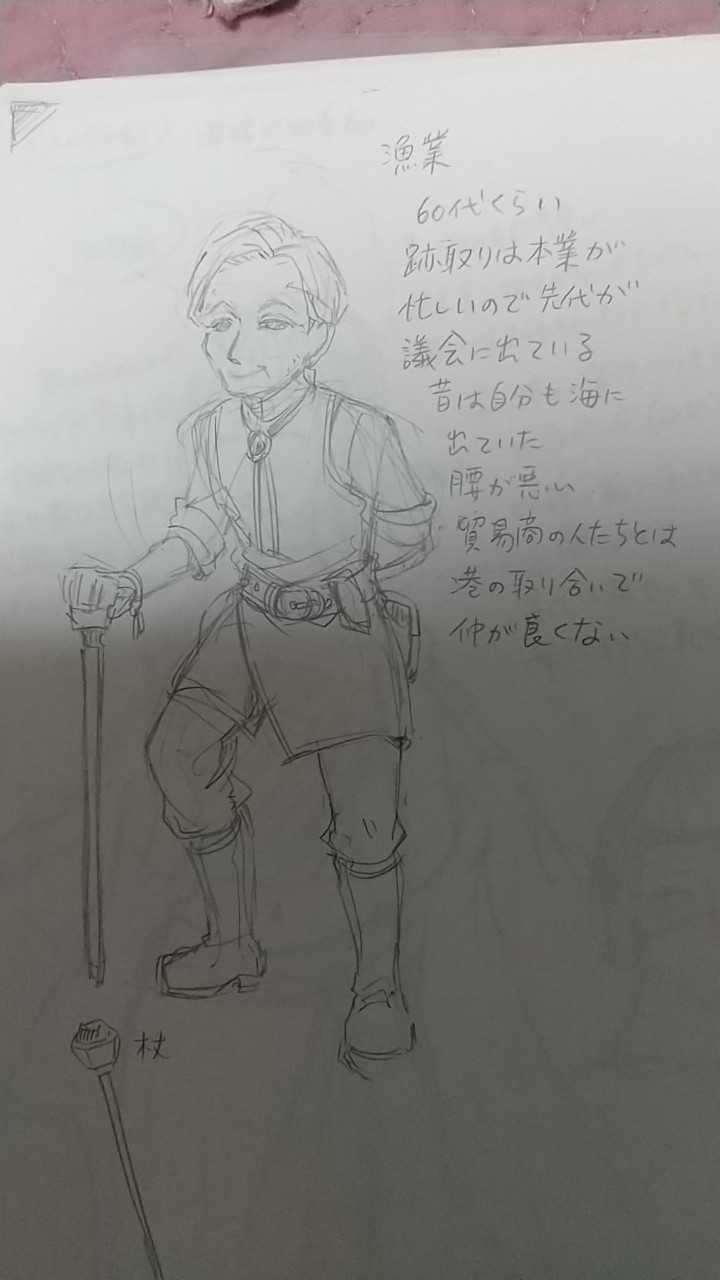 漁業
60代くらい
跡取りは本業が
忙しいので先代が
議会に出ている
昔は自分も海に
出ていた
腰が悪い
貿易商の人たちとは
港の取り合いで
仲が良くない
杖